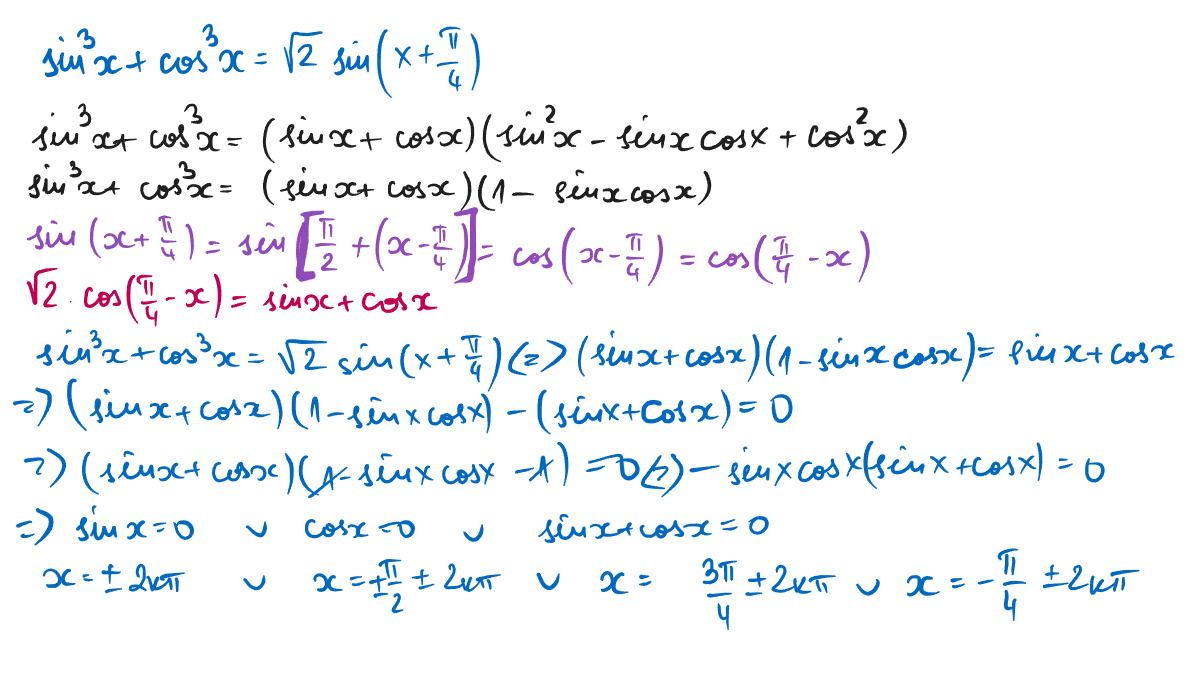 sin³x + cos³x = √2 sin(x + π/4)
sin³x + cos³x = (sinx + cosx)(sin²x - sinx cosx + cos²x)
sin³x + cos³x = (sinx + cosx)(1 - sinx cosx)
sin(x + π/4) = sin[π/2 + (x - π/4)] = cos(x - π/4) = cos(π/4 - x)
√2 · cos(π/4 - x) = sinx + cosx
sin³x + cos³x = √2 sin(x + π/4) (=> (sinx + cosx)(1 - sinx cosx) = sinx + cosx
=> (sinx + cosx)(1 - sinx cosx) - (sinx + cosx) = 0
=> (sinx + cosx)(1 - sinx cosx - 1) = 0 (=> - sinx cosx (sinx + cosx) = 0
=> sinx = 0 ∨ cosx = 0 ∨ sinx + cosx = 0
x = ± 2kπ ∨ x = ± π/2 ± 2kπ ∨ x = 3π/4 ± 2kπ ∨ x = - π/4 ± 2kπ